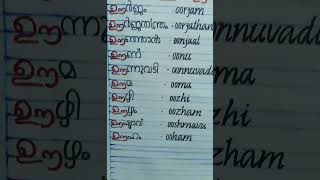 ഊർജ്ജം - oorjam
ഊർജ്ജതന്ത്രം - oorjathan
ഊഞ്ഞാൽ - oonjaal
ഊണ് - oonu
ഊന്നുവടി - oonnuvad
ഊമ - ooma
ഊഴി - oozhi
ഊഴം - oozham
ഊഷ്മാവ് - ooshmavu
ഊഹം - ooham